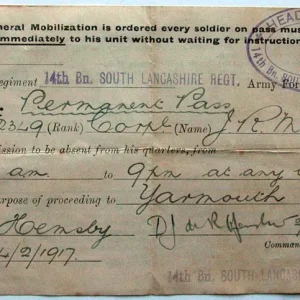 neral Mobilization is ordered every soldier on pass mus
mmediately to his unit without waiting for instruction
HEAD
14th Bn.
egiment 14th Bn. SOUTH LANCASHIRE REGT. Army For
Permanent Pass
2349 (Rank) Corpl (Name) J. R. M
ission to be absent from his quarters, from
am. to 9pm at any
urpose of proceeding to Yarmouth
Hemsby
4/2/1917.
Comman
14th Bn. SOUTH LANCAS